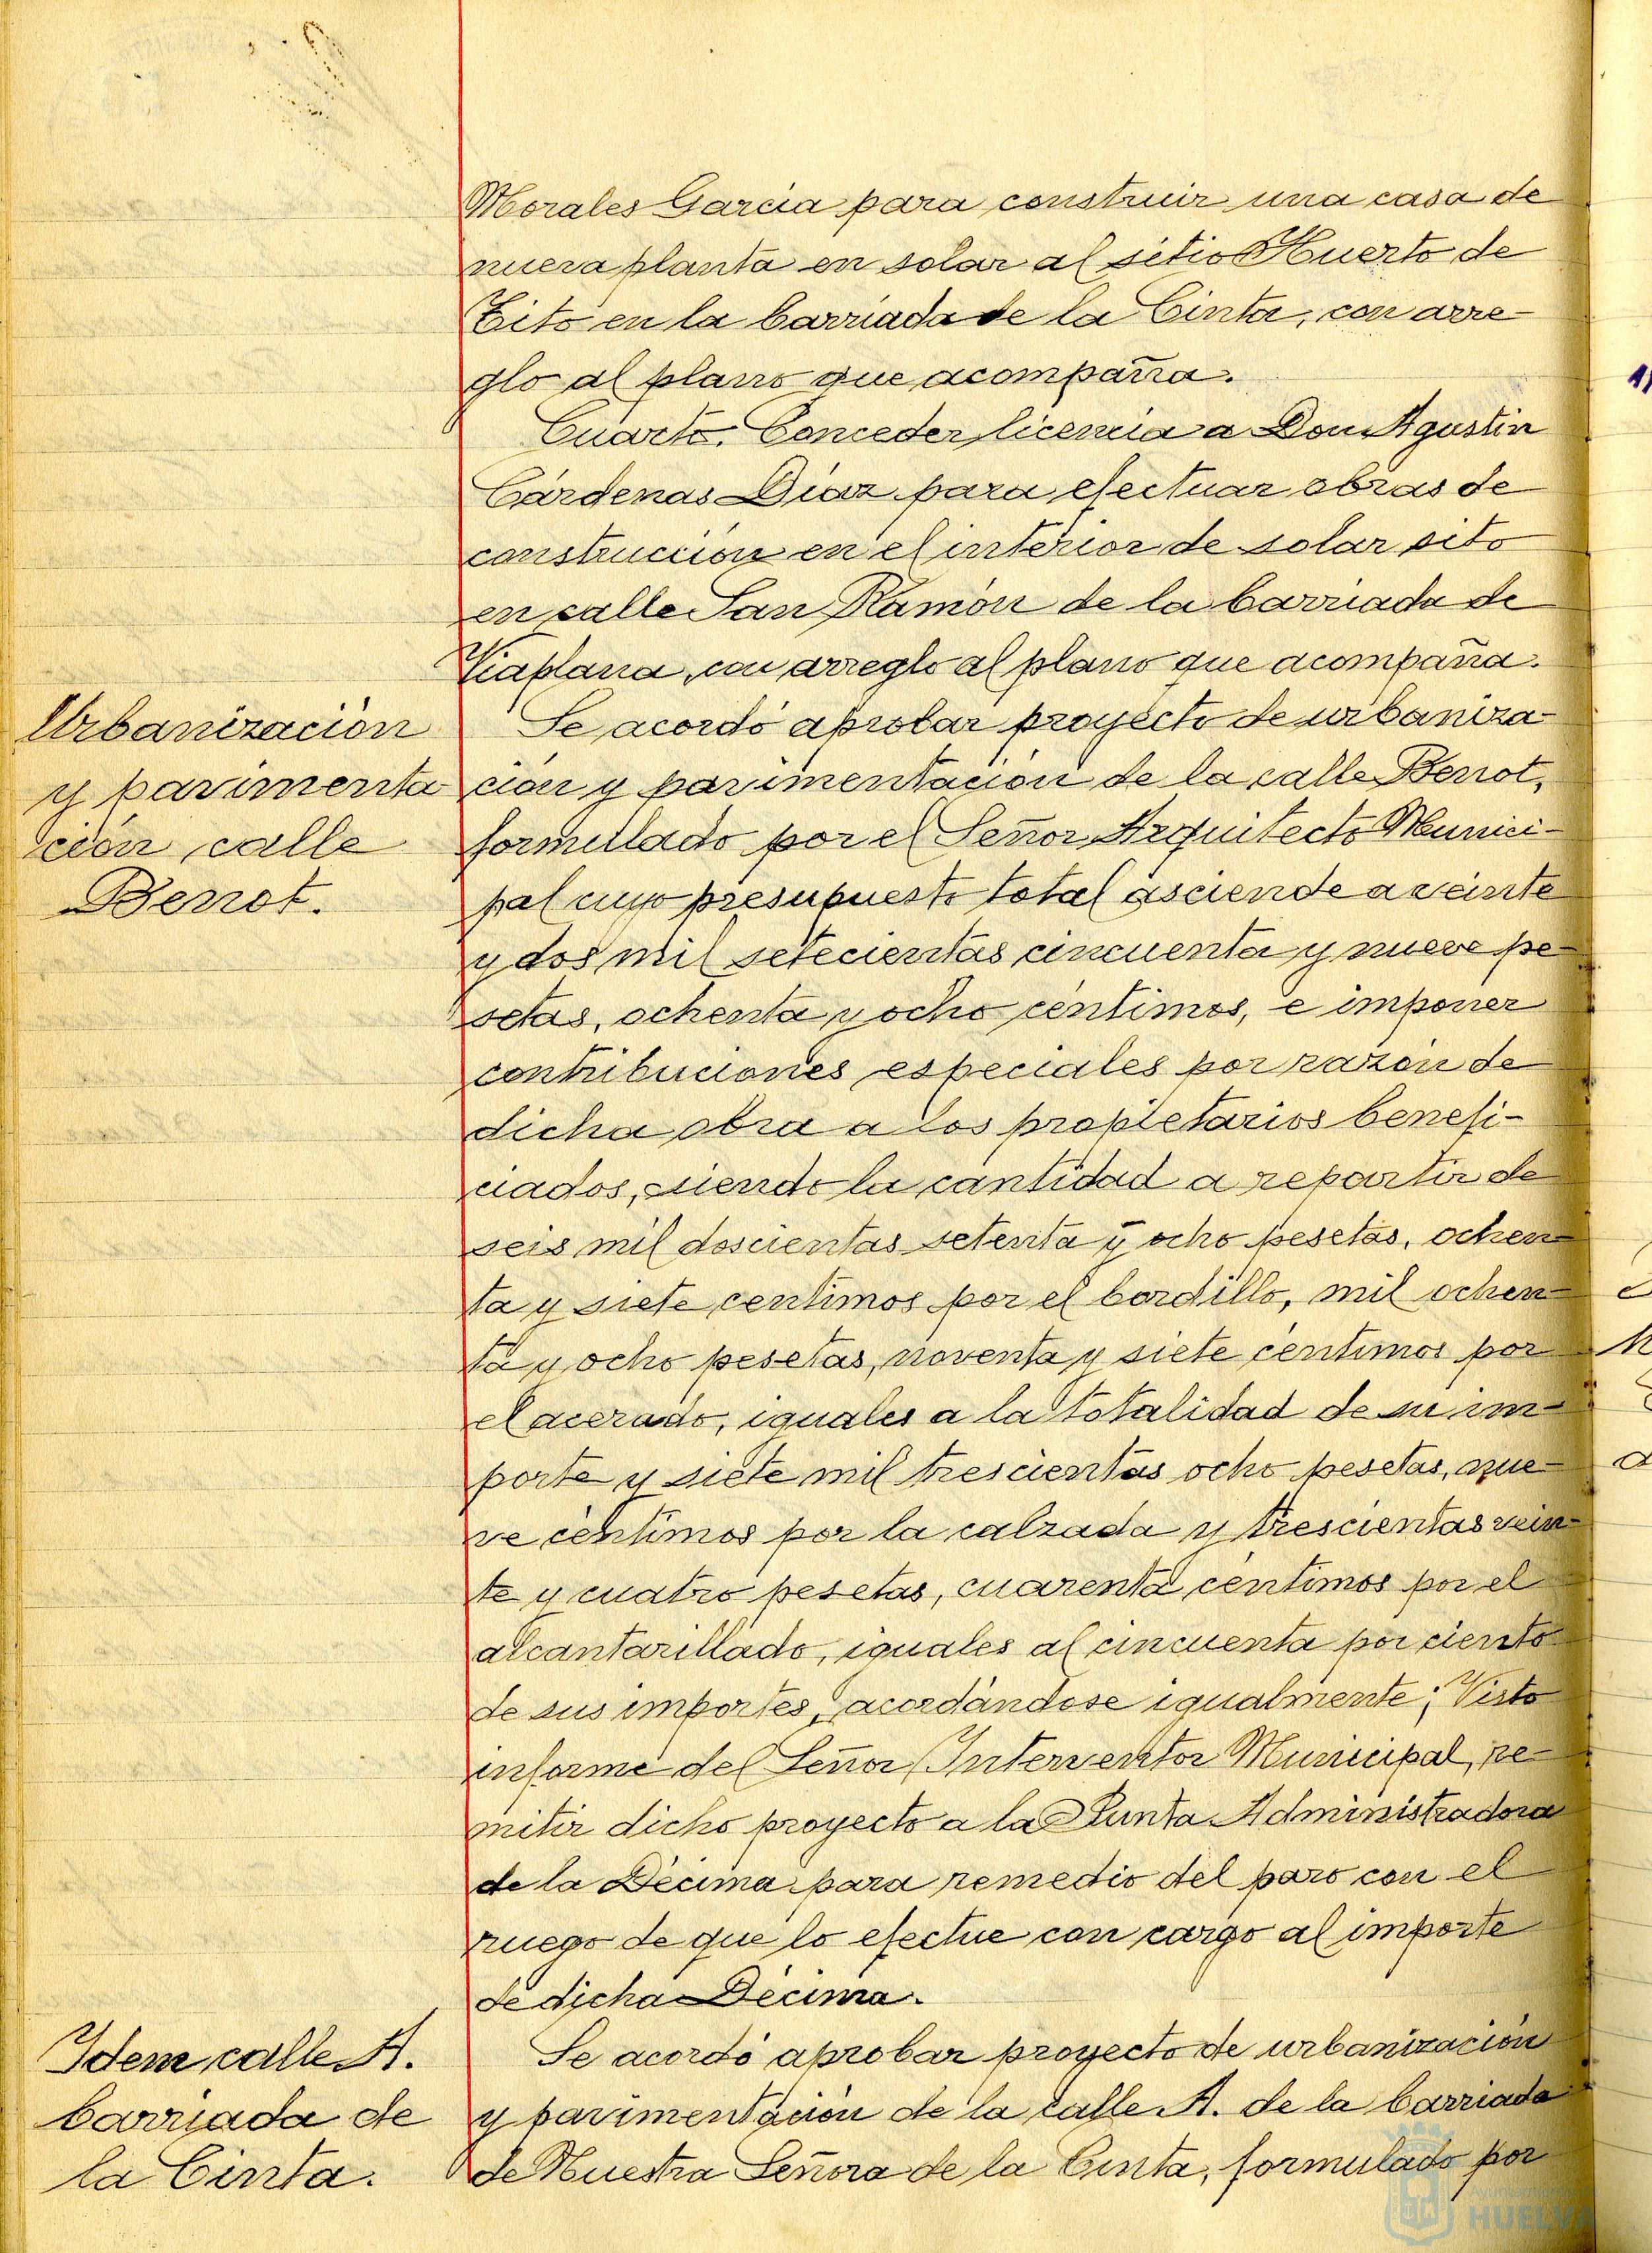 Morales García para construir una casa de
nueva planta en solar al sitio Huerto de
Tito en la barriada de la Cinta, con arre-
glo al plano que acompaña.
Cuarto. Conceder licencia a Don Agustín
Cárdenas Díaz para efectuar obras de
construcción en el interior de solar sito
en calle San Ramón de la barriada de
Viaplana, con arreglo al plano que acompaña.
Urbanización
y pavimenta
ción calle
Benot.
Se acordó aprobar proyecto de urbaniza-
ción y pavimentación de la calle Benot,
formulado por el Señor Arquitecto Munici-
pal cuyo presupuesto total asciende a veinte
y dos mil setecientas cincuenta y nueve pe-
setas, ochenta y ocho céntimos, e imponer
contribuciones especiales por razón de
dicha obra a los propietarios benefi-
ciados, siendo la cantidad a repartir de
seis mil doscientas setenta y ocho pesetas, ochen-
ta y siete centimos por el bordillo, mil ochen-
ta y ocho pesetas, noventa y siete céntimos por
el acerado, iguales a la totalidad de su im-
porte y siete mil trescientas ocho pesetas, nue-
ve céntimos por la calzada y trescientas vein-
te y cuatro pesetas, cuarenta céntimos por el
alcantarillado, iguales al cincuenta por ciento
de sus importes, acordándose igualmente; Visto
informe del Señor Interventor Municipal, re-
mitir dicho proyecto a la Junta Administradora
de la Décima para remedio del paro con el
ruego de que lo efectue con cargo al importe
de dicha Décima.
Idem calle A.
barriada de
la Cinta.
Se acordó aprobar proyecto de urbanización
y pavimentación de la calle A. de la barriada
de Nuestra Señora de la Cinta, formulado por
Ayuntamiento
HUELVA